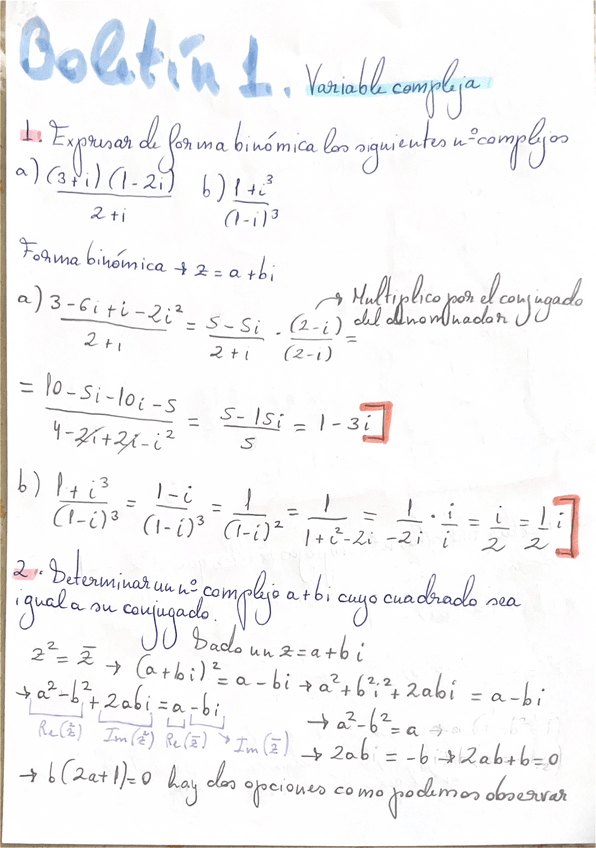 Boletín 1. Variable compleja
1. Expresar de forma binómica los siguientes nº complejos
a) (3+i)(1-2i) / 2+i   b) 1+i³ / (1-i)³
Forma binómica → z = a+bi
a) 3-6i+i-2i² / 2+i = 5-5i / 2+i · (2-i) / (2-i) = → Multiplico por el conjugado
del denominador
= 10-5i-10i-5 / 4-2i+2i-i² = 5-15i / 5 = 1-3i
b) 1+i³ / (1-i)³ = 1-i / (1-i)³ = 1 / (1-i)² = 1 / 1+i²-2i = 1 / -2i · i / i = i / 2 = 1/2 i
2. Determinar un nº complejo a+bi cuyo cuadrado sea
igual a su conjugado.
Dado un z = a+bi
z² = z̄ → (a+bi)² = a-bi → a²+b²i²+2abi = a-bi
→ a²-b²+2abi = a-bi → a²-b² = a
Re(z²) Im(z²) Re(z̄) → Im(z̄) → 2abi = -b → 2ab+b=0
→ b(2a+1)=0 hay dos opciones como podemos observar